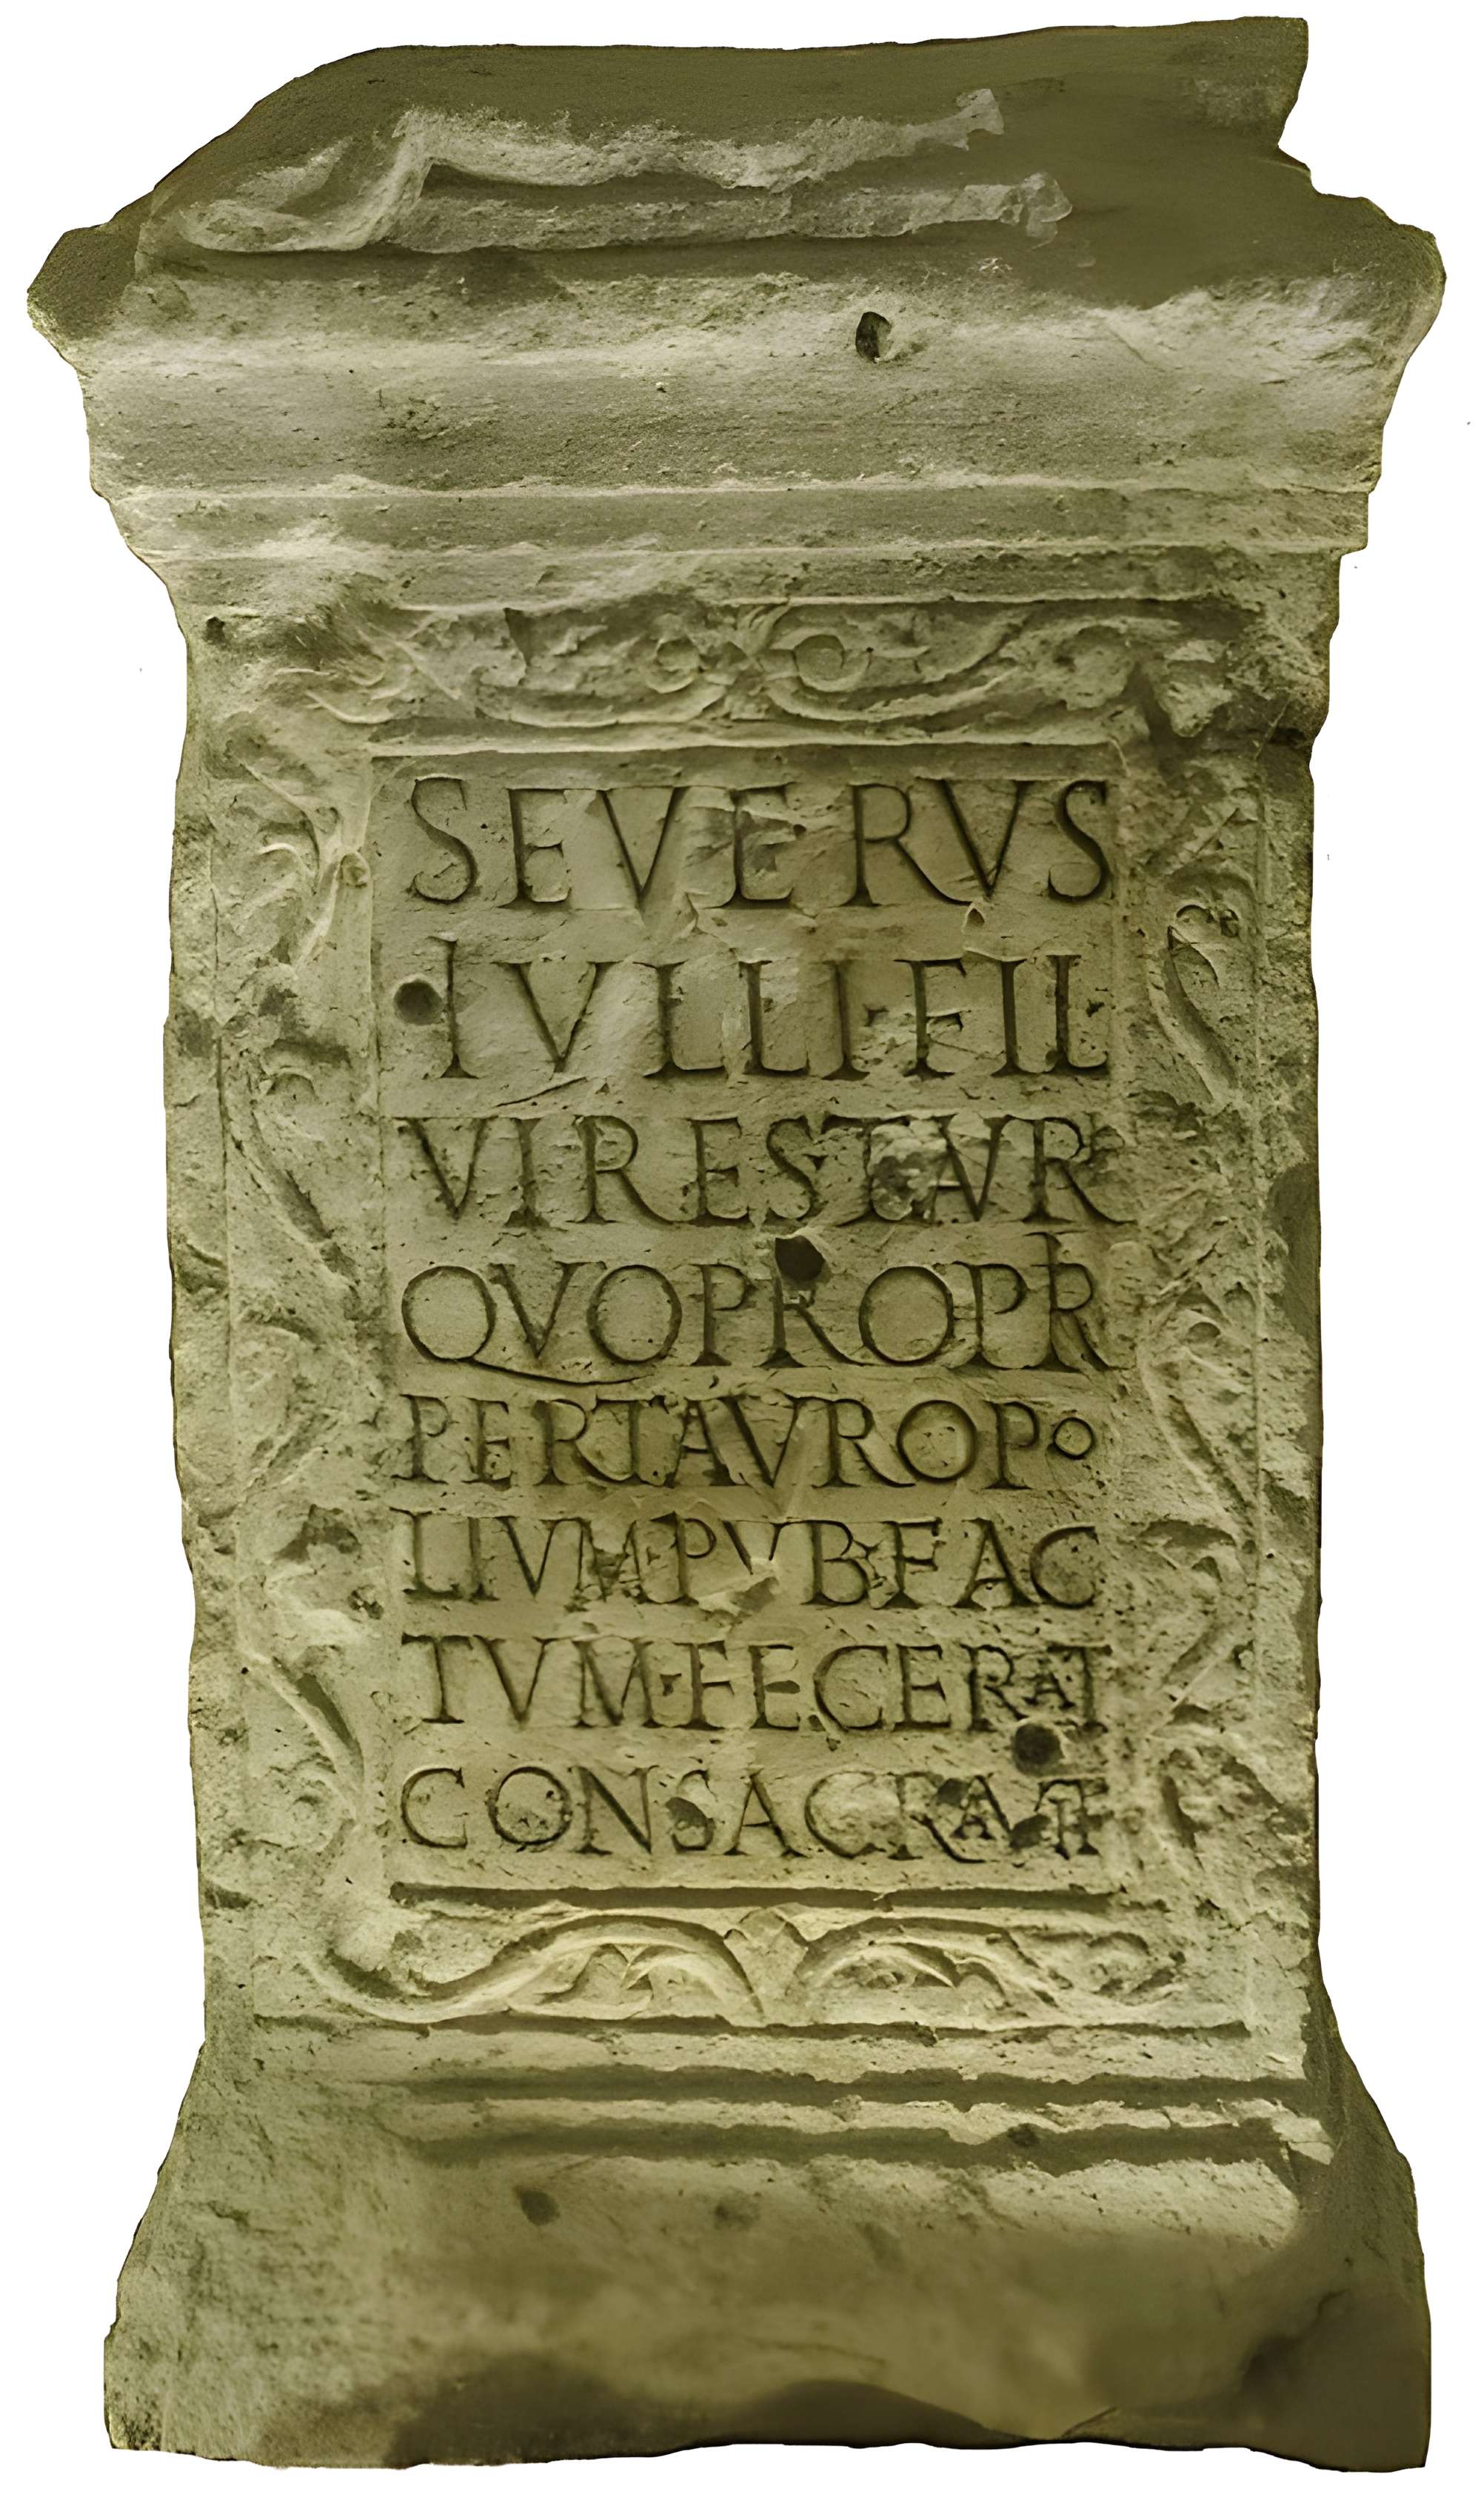 SEVERVS
IVLLI·FIL
VIRES·TAVR
QVO PROPR
PER TAVROPO
LIVM·PVB·FAC
TVM·FECERAT
CONSACRAVIT